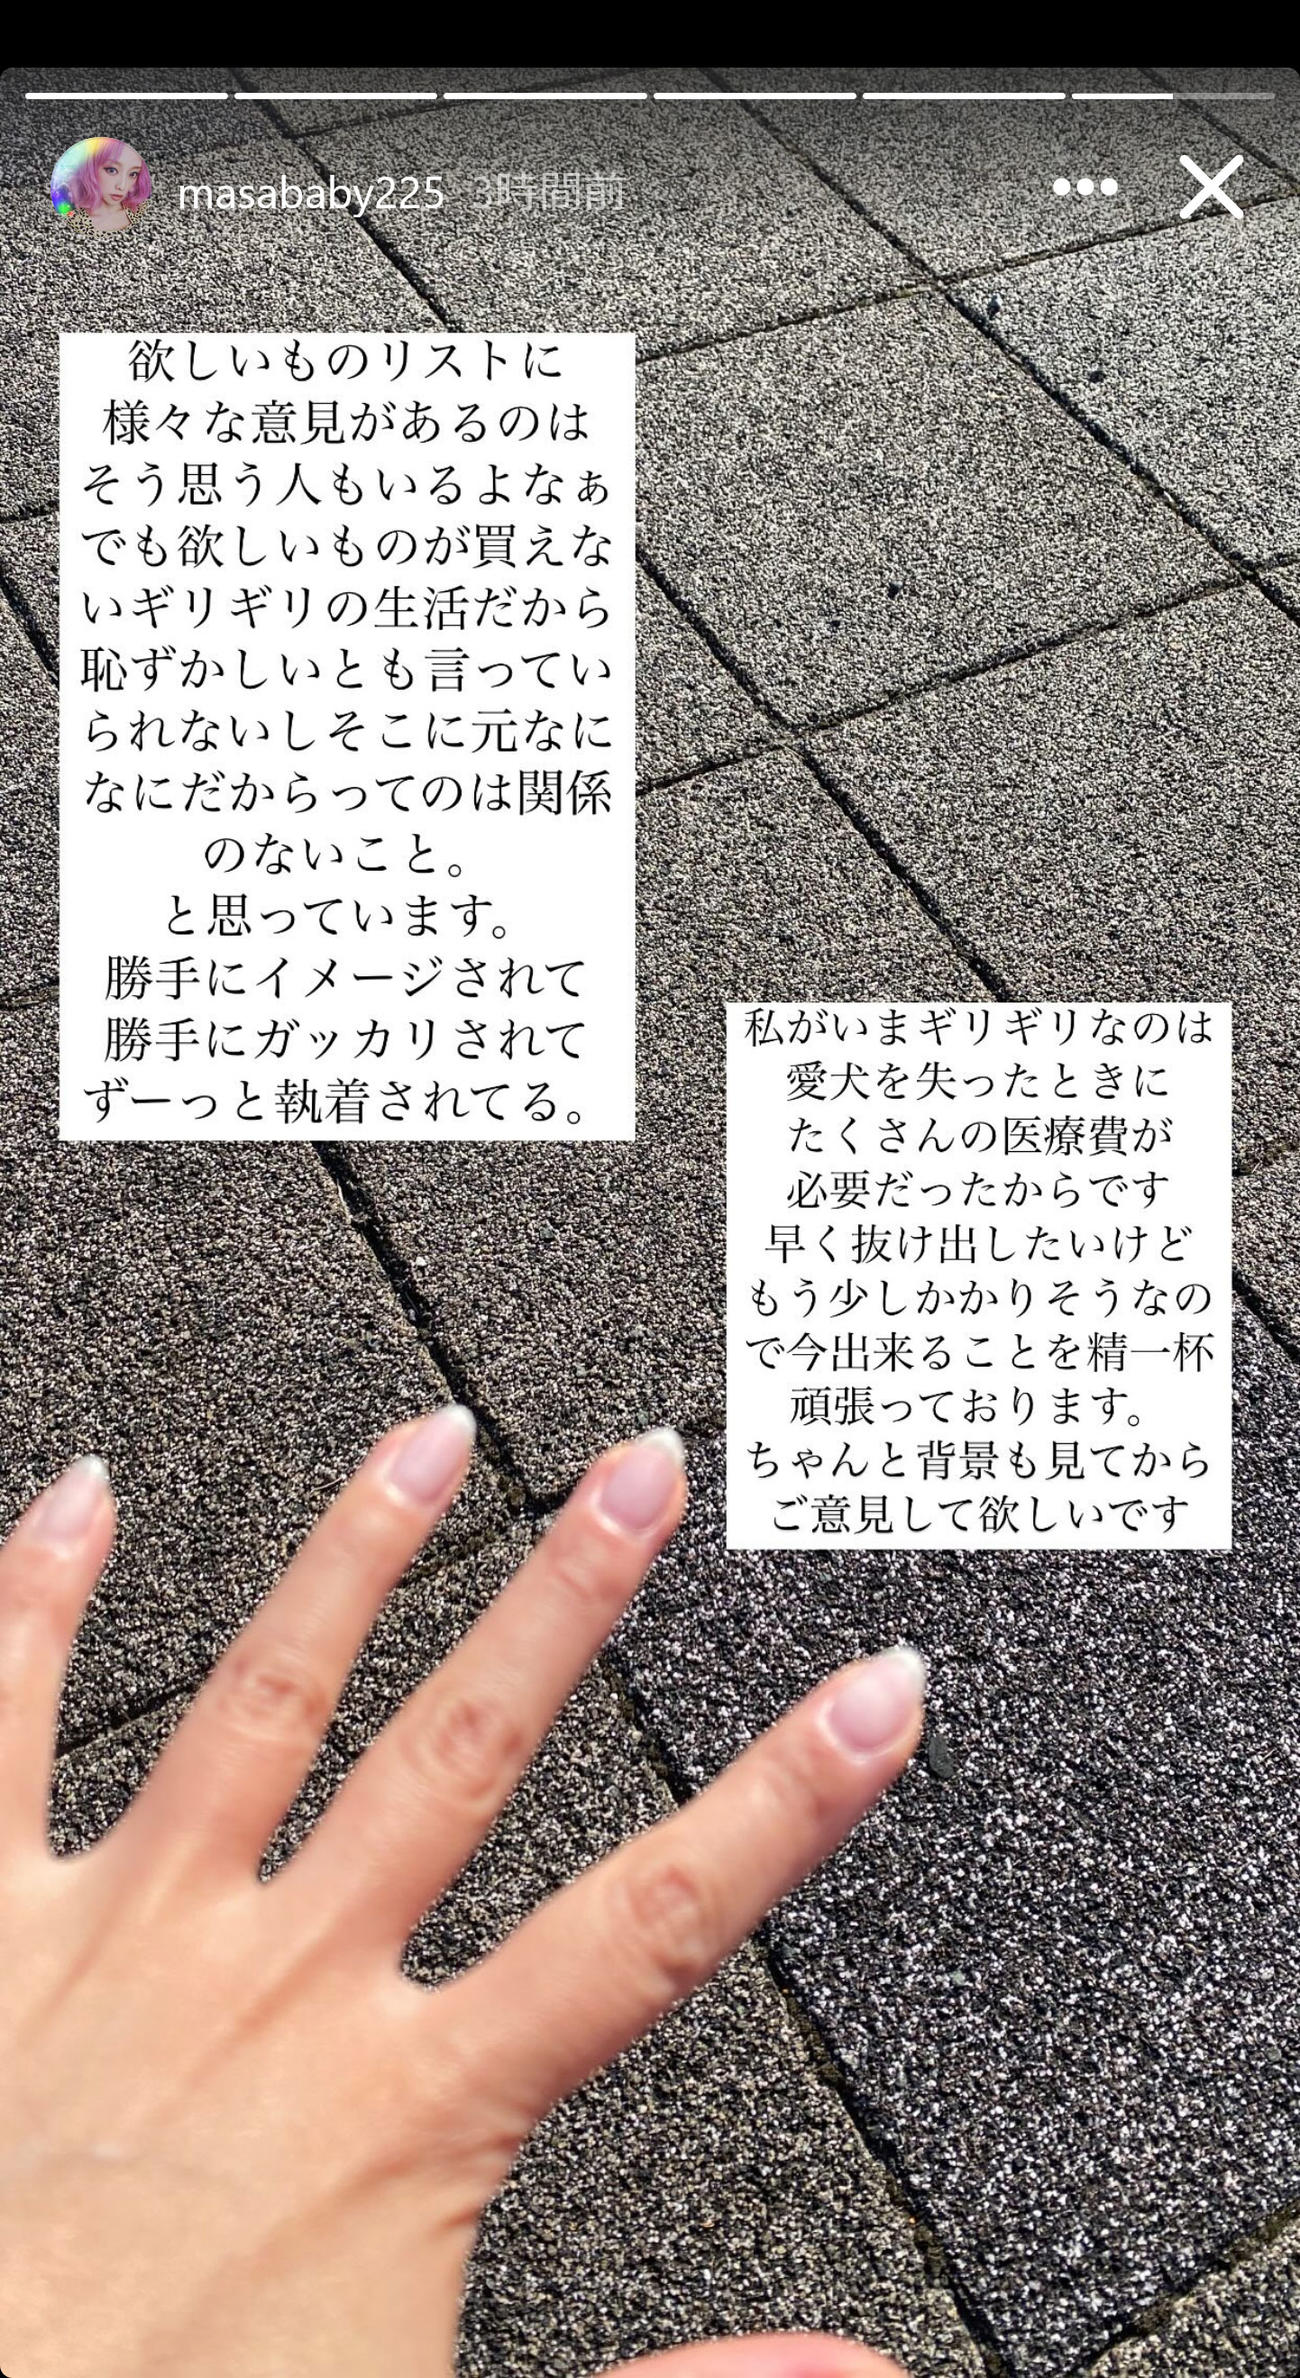 masababy225 3時間前
欲しいものリストに
様々な意見があるのは
そう思う人もいるよなぁ
でも欲しいものが買えな
いギリギリの生活だから
恥ずかしいとも言ってい
られないしそこに元なに
なにだからってのは関係
のないこと。
と思っています。
勝手にイメージされて
勝手にガッカリされて
ずーっと執着されてる。
私がいまギリギリなのは
愛犬を失ったときに
たくさんの医療費が
必要だったからです
早く抜け出したいけど
もう少しかかりそうなの
で今出来ることを精一杯
頑張っております。
ちゃんと背景も見てから
ご意見して欲しいです